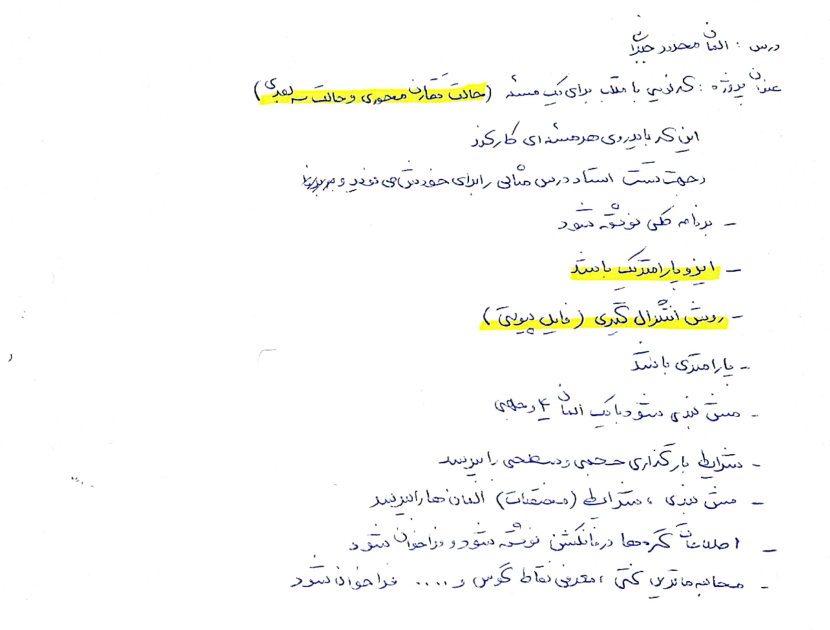 درس : المان محدود جبران
عنوان پروژه : کدنویسی با متلب برای یک مسئله (حالت تقارن محوری و حالت سه بعدی)
این کد باید روی هر مسئله ای کار کند
و جهت تست استاد درس مثالی را برای خودش می نویسد و
- برنامه کلی نوشته شود
- ایزوپارامتریک باشد
- روش انتگرال گیری (فایل پیوستی)
- پارامتری باشد
- مش بندی شود با یک المان ۴ وجهی
- شرایط بارگذاری حجمی و سطحی را بپرسد
- مش بندی ، شرایط (مختصات) المان ها را بپرسد
- اطلاعات گره ها در فانکشن نوشته شود و فراخوان شود
- محاسبه ماتریس سختی ، معرفی نقاط گوس و .... فراخوان شود